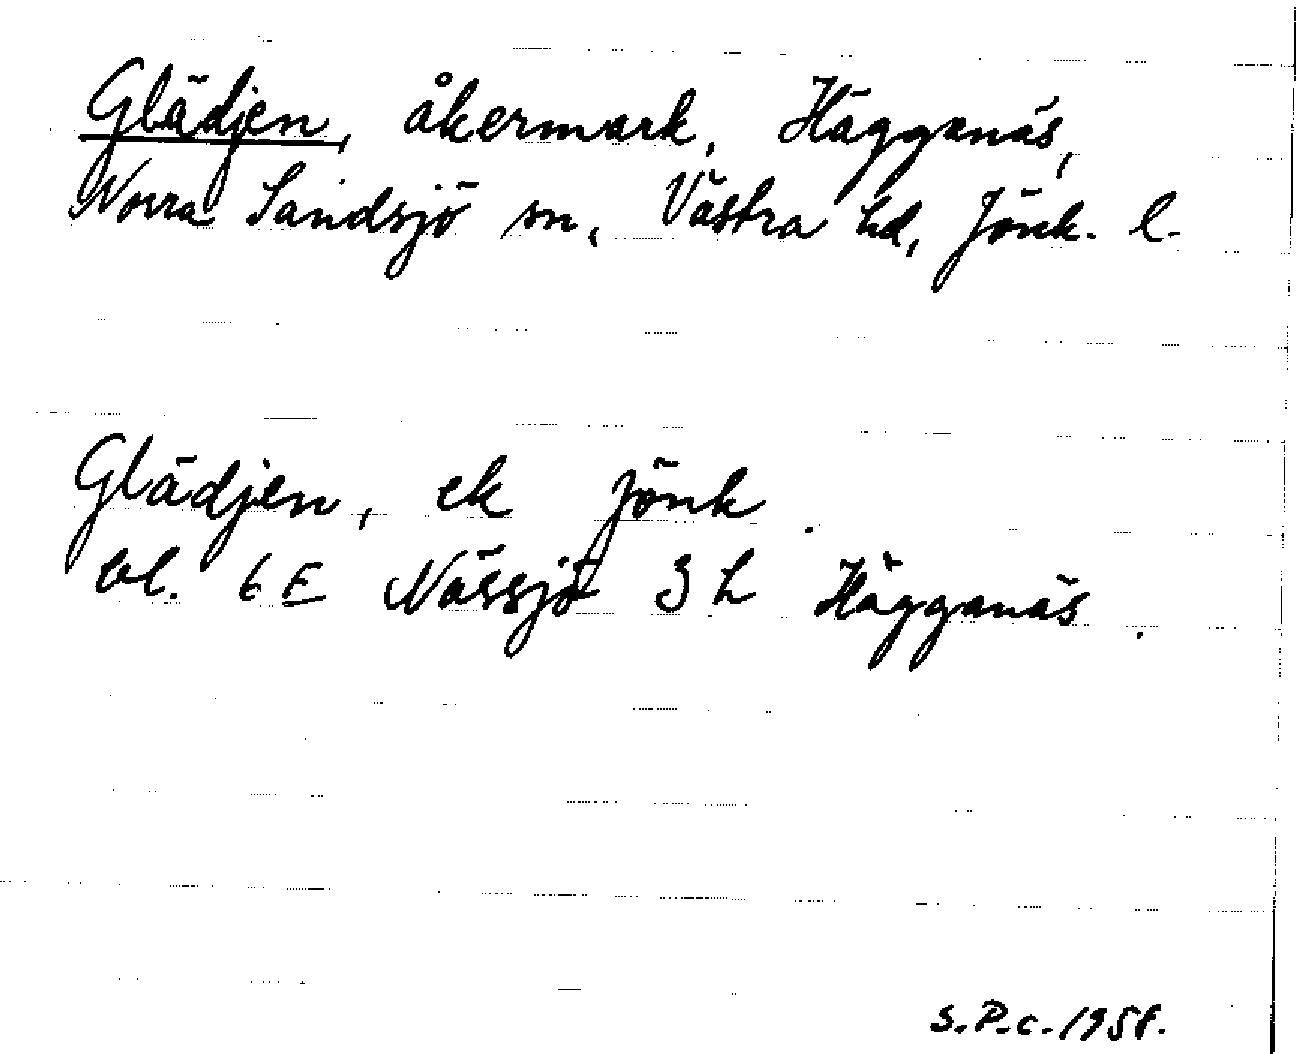 Glädjen, åkermark, Hägganäs,
Norra Sandsjö sn, Västra hd, Jönk. l.
Glädjen, ek Jönk.
bl. 6 E Nässjö 3 h Hägganäs.
S.P.C. 1958.